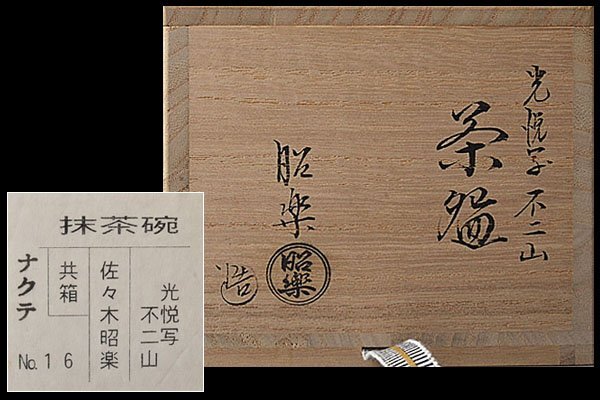 光悦写 不二山
茶盌
昭楽
昭樂
造
抹茶碗
光悦写
不二山
佐々木昭楽
共箱
ナクテ
No.16